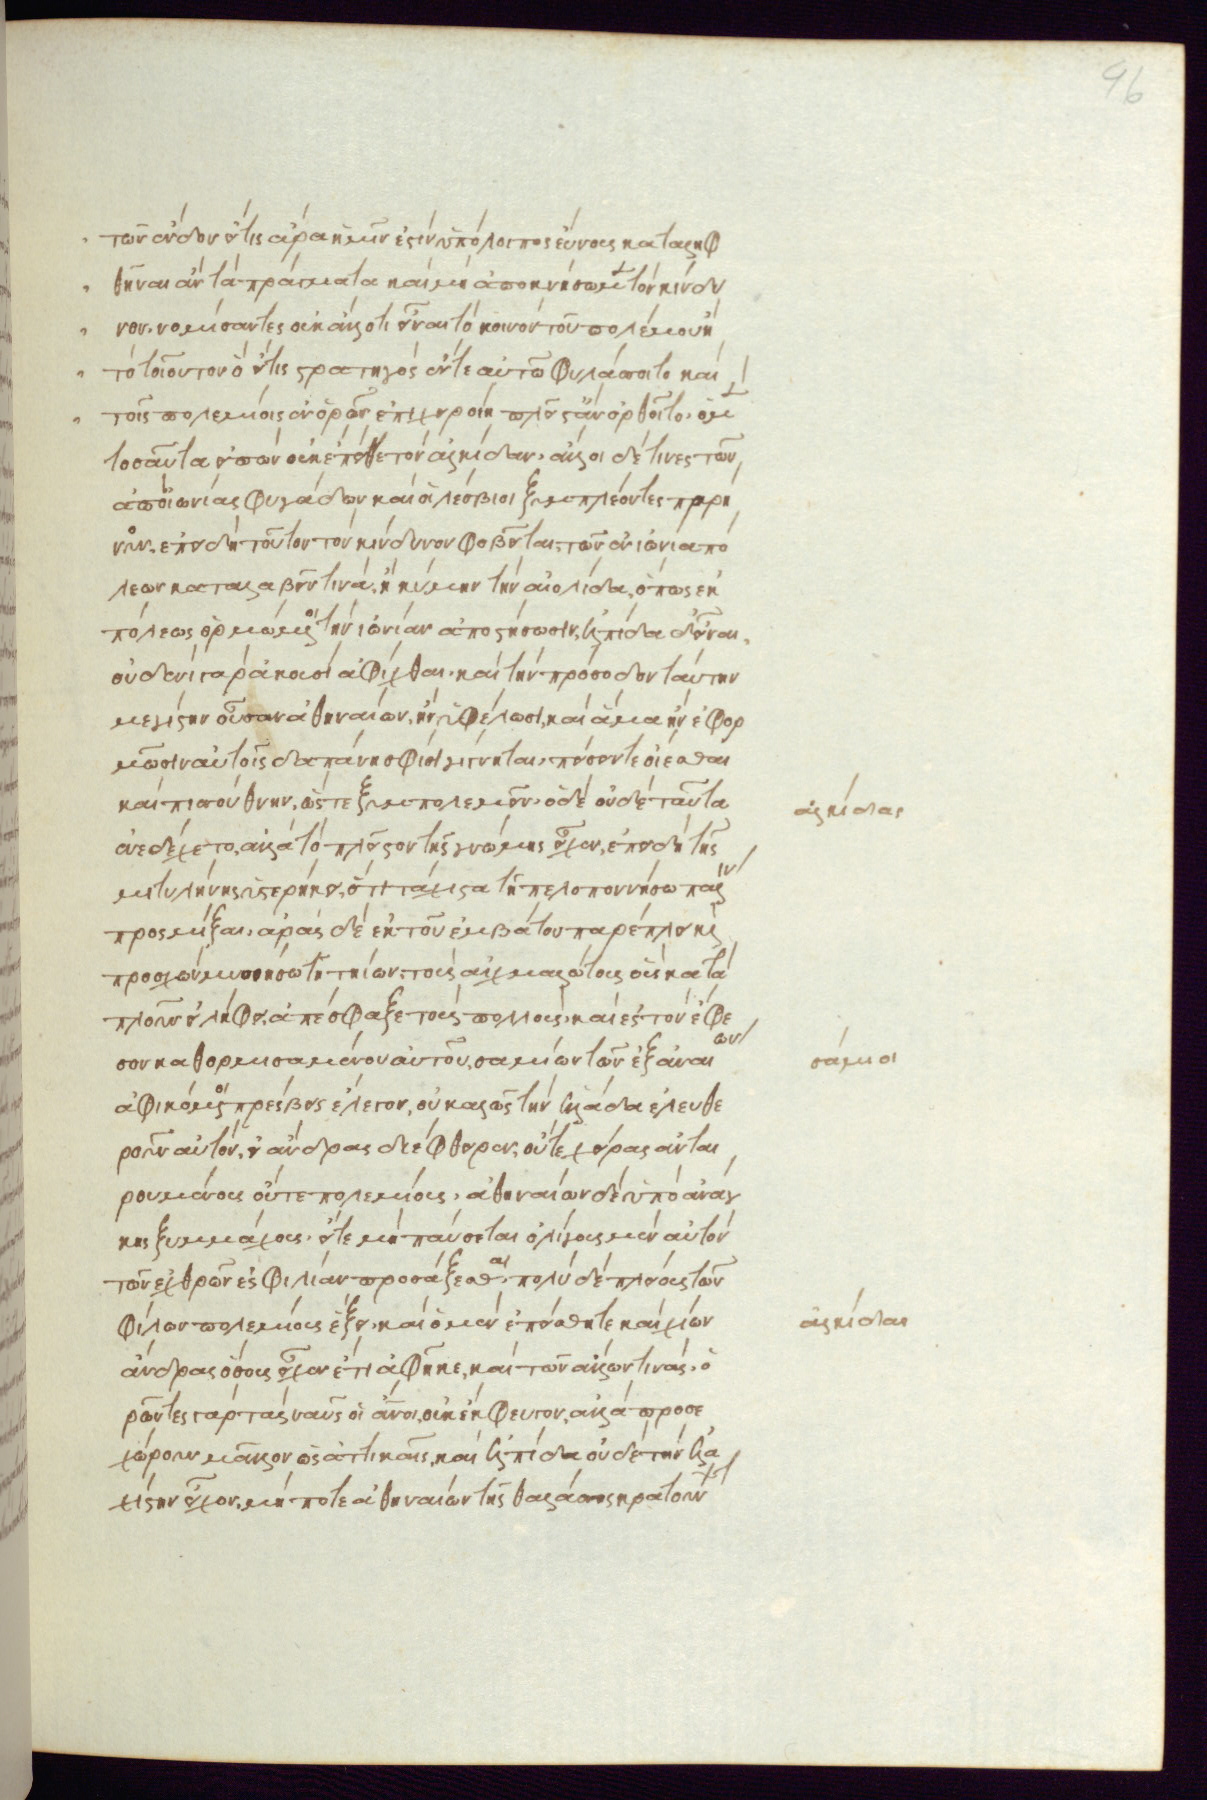 96
τῶν ἔνδον εἴτις ἄρα ἡμῖν ἐστὶν ὑπόλοιπος εὔνους καταληφ
θῆναι ἂν τὰ πράγματα καὶ μὴ ἀποκνήσωμεν τὸν κίνδυ
νον· νομίσαντες οὐκ ἄλλό τι εἶναι τὸ κοινὸν τοῦ πολέμου ἢ
τὸ τοιοῦτον ὃ εἴτις στρατηγὸς ἔν τε αὐτῶ φυλάσσοιτο καὶ
τοῖς πολεμίοις ἐνορῶν ἐπιχειροίη πλεῖστ' ἂν ὀρθοῖτο. ὁ μὲν
τοσαῦτα εἰπὼν οὐκ ἔπειθε τὸν ἀλκίδαν. ἄλλοι δέ τινες τῶν
ἀπὸ ἰωνίας φυγάδων καὶ οἱ λέσβιοι ξυμπλέοντες παρή
νουν, ἐπειδὴ τοῦτον τὸν κίνδυνον φοβεῖται, τῶν ἐν ἰωνία πό
λεων καταλαβεῖν τινά, ἢ κύμην τὴν αἰολίδα, ὅπως ἐκ
πόλεως ὁρμώμενοι τὴν ἰωνίαν ἀποστήσωσιν, ἐλπίδα δ' εἶναι,
οὐδενὶ γὰρ ἀκουσίως ἀφίχθαι. καὶ τὴν πρόσοδον ταύτην
μεγίστην οὖσαν ἀθηναίων, ἢν ὑφέλωσι, καὶ ἅμα ἢν ἐφορ
μῶσιν αὐτοῖς δαπάνη σφίσι γίγνηται. πείσειν τε οἴεσθαι
καὶ πισσούθνην, ὥστε ξυμπολεμεῖν. ὁ δὲ οὐδὲ ταῦτα
ἐνεδέχετο, ἀλλὰ τὸ πλεῖστον τῆς γνώμης εἶχεν, ἐπειδὴ τῆς
μιτυλήνης ὑστερήκει, ὅτι τάχιστα τῆ πελοποννήσω πάλιν
προσμίξαι. ἄρας δὲ ἐκ τοῦ ἐμβάτου παρέπλει καὶ
προσχὼν μυοννήσω τῆ τηίων, τοὺς αἰχμαλώτους οὓς κατὰ
πλοῦν εἰλήφει, ἀπέσφαξε τοὺς πολλούς. καὶ ἐς τὸν ἔφε
σον καθορμισαμένου αὐτοῦ, σαμίων τῶν ἐξ ἀναίων
ἀφικόμενοι πρέσβεις ἔλεγον, οὐ καλῶς τὴν ἑλλάδα ἐλευθε
ροῦν αὐτόν, εἰ ἄνδρας διέφθειρεν, οὔτε χεῖρας ἀνται
ρομένους οὔτε πολεμίους. ἀθηναίων δὲ ὑπὸ ἀνάγ
κης ξυμμάχους. εἴ τε μὴ παύσεται ὀλίγους μὲν αὐτὸν
τῶν ἐχθρῶν ἐς φιλίαν προσάξεσθαι. πολὺ δὲ πλείους τῶν
φίλων πολεμίους ἕξειν. καὶ ὁ μὲν ἐπείσθη τε καὶ χίων
ἄνδρας ὅσους εἶχεν ἔτι ἀφῆκε, καὶ τῶν ἄλλων τινάς. ὁ
ρῶντες γὰρ τὰς ναῦς οἱ ἄνοι, οὐκ ἔφευγον, ἀλλὰ προσε
χώρουν μᾶλλον ὡς ἀττικαῖς, καὶ ἐλπίδα οὐδὲ τὴν ἐλα
χίστην εἶχον, μή ποτε ἀθηναίων τῆς θαλάσσης κρατούντων
ἀλκίδας
σάμιοι
ἀλκίδας